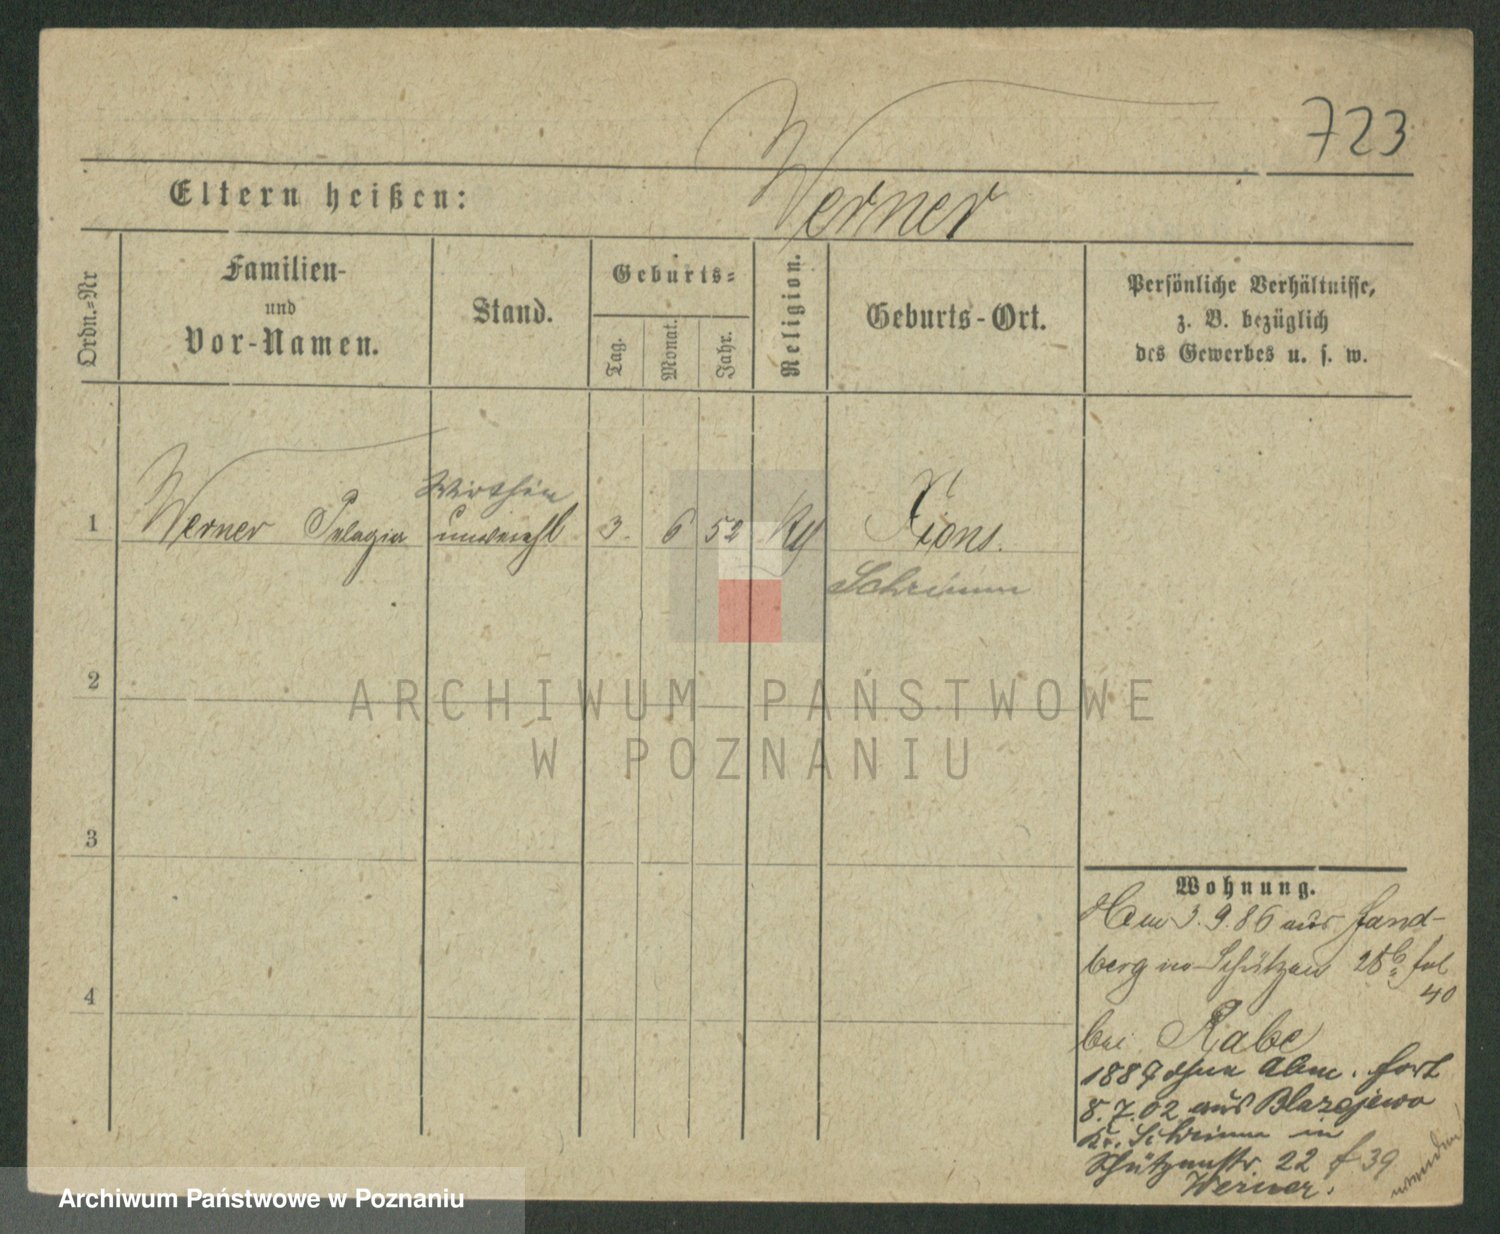 723
Eltern heißen: Werner
Ordn.-Nr
Familien-
und
Vor-Namen.
Stand.
Geburts=
Tag.
Monat.
Jahr.
Religion.
Geburts-Ort.
Persönliche Verhältnisse,
z. B. bezüglich
des Gewerbes u. s. w.
Wirthin
1 Werner Pelagia unverehl 3. 6 52 Xions.
Schrimm
2
3
4
ARCHIWUM PAŃSTWOWE
W POZNANIU
Wohnung.
3.9.86 aus Land-
berg in Schützen 28b fol
40
bei Rabe
1887 ohne Abm. fort
8.7.02 aus Blazejewo
Kr. Schrimm in
Schützenstr. 22 f 39
Werner.
Archiwum Państwowe w Poznaniu